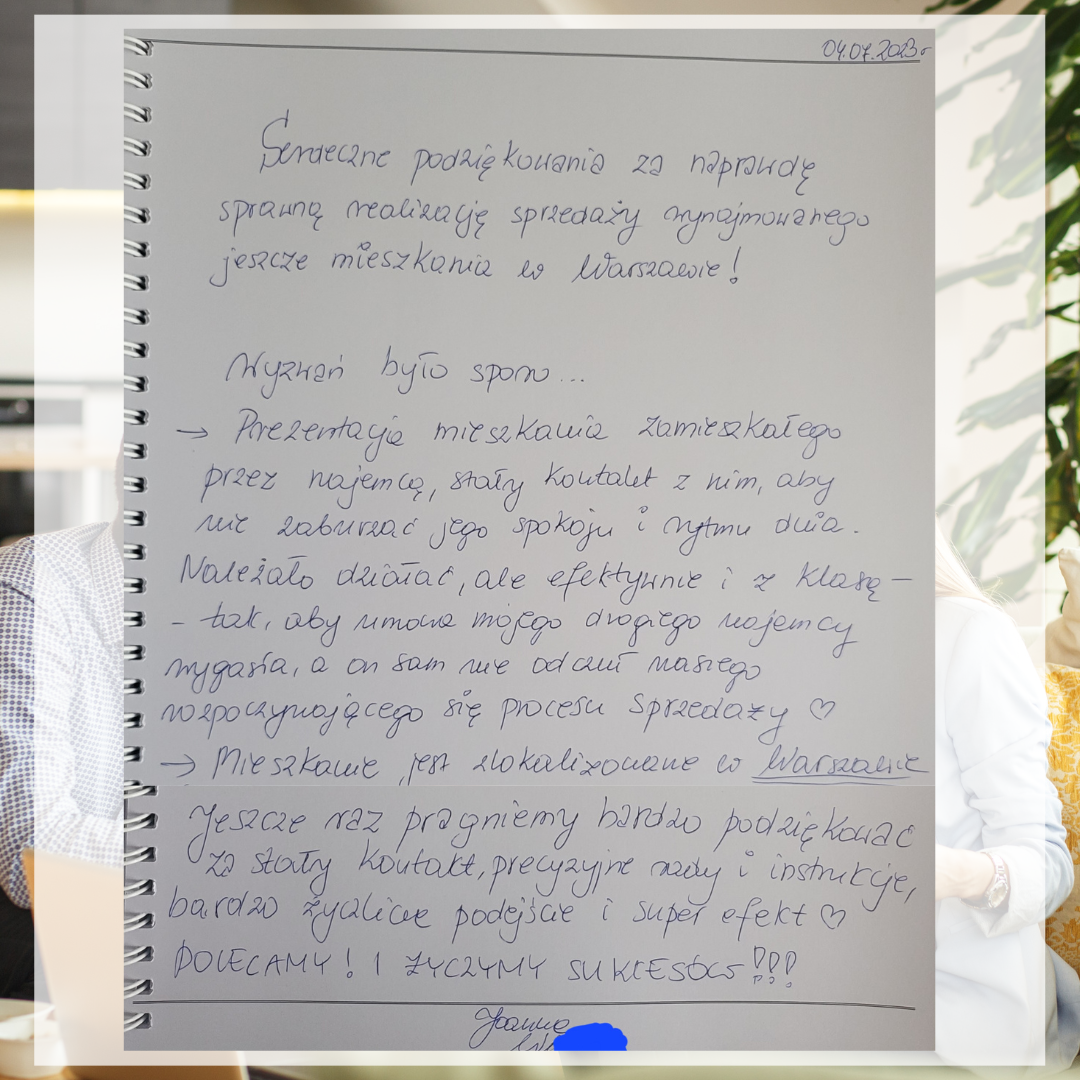 04.07.2023r
Serdeczne podziękowania za naprawdę
sprawną realizację sprzedaży wynajmowanego
jeszcze mieszkania w Warszawie!
Wyzwań było sporo...
→ Prezentacja mieszkania zamieszkałego
przez najemcą, stały kontakt z nim, aby
nie zaburzać jego spokoju i rytmu dnia.
Należało działać, ale efektywnie i z klasą –
– tak, aby umowa mojego drogiego najemcy
wygasła, a on sam nie odczuł naszego
rozpoczynającego się procesu sprzedaży ♡
→ Mieszkanie jest zlokalizowane w Warszawie
Jeszcze raz pragniemy bardzo podziękować
za stały kontakt, precyzyjne rady i instrukcje,
bardzo życzliwe podejście i super efekt ♡
POLECAMY! I ŻYCZYMY SUKCESÓW!!!
Joanna